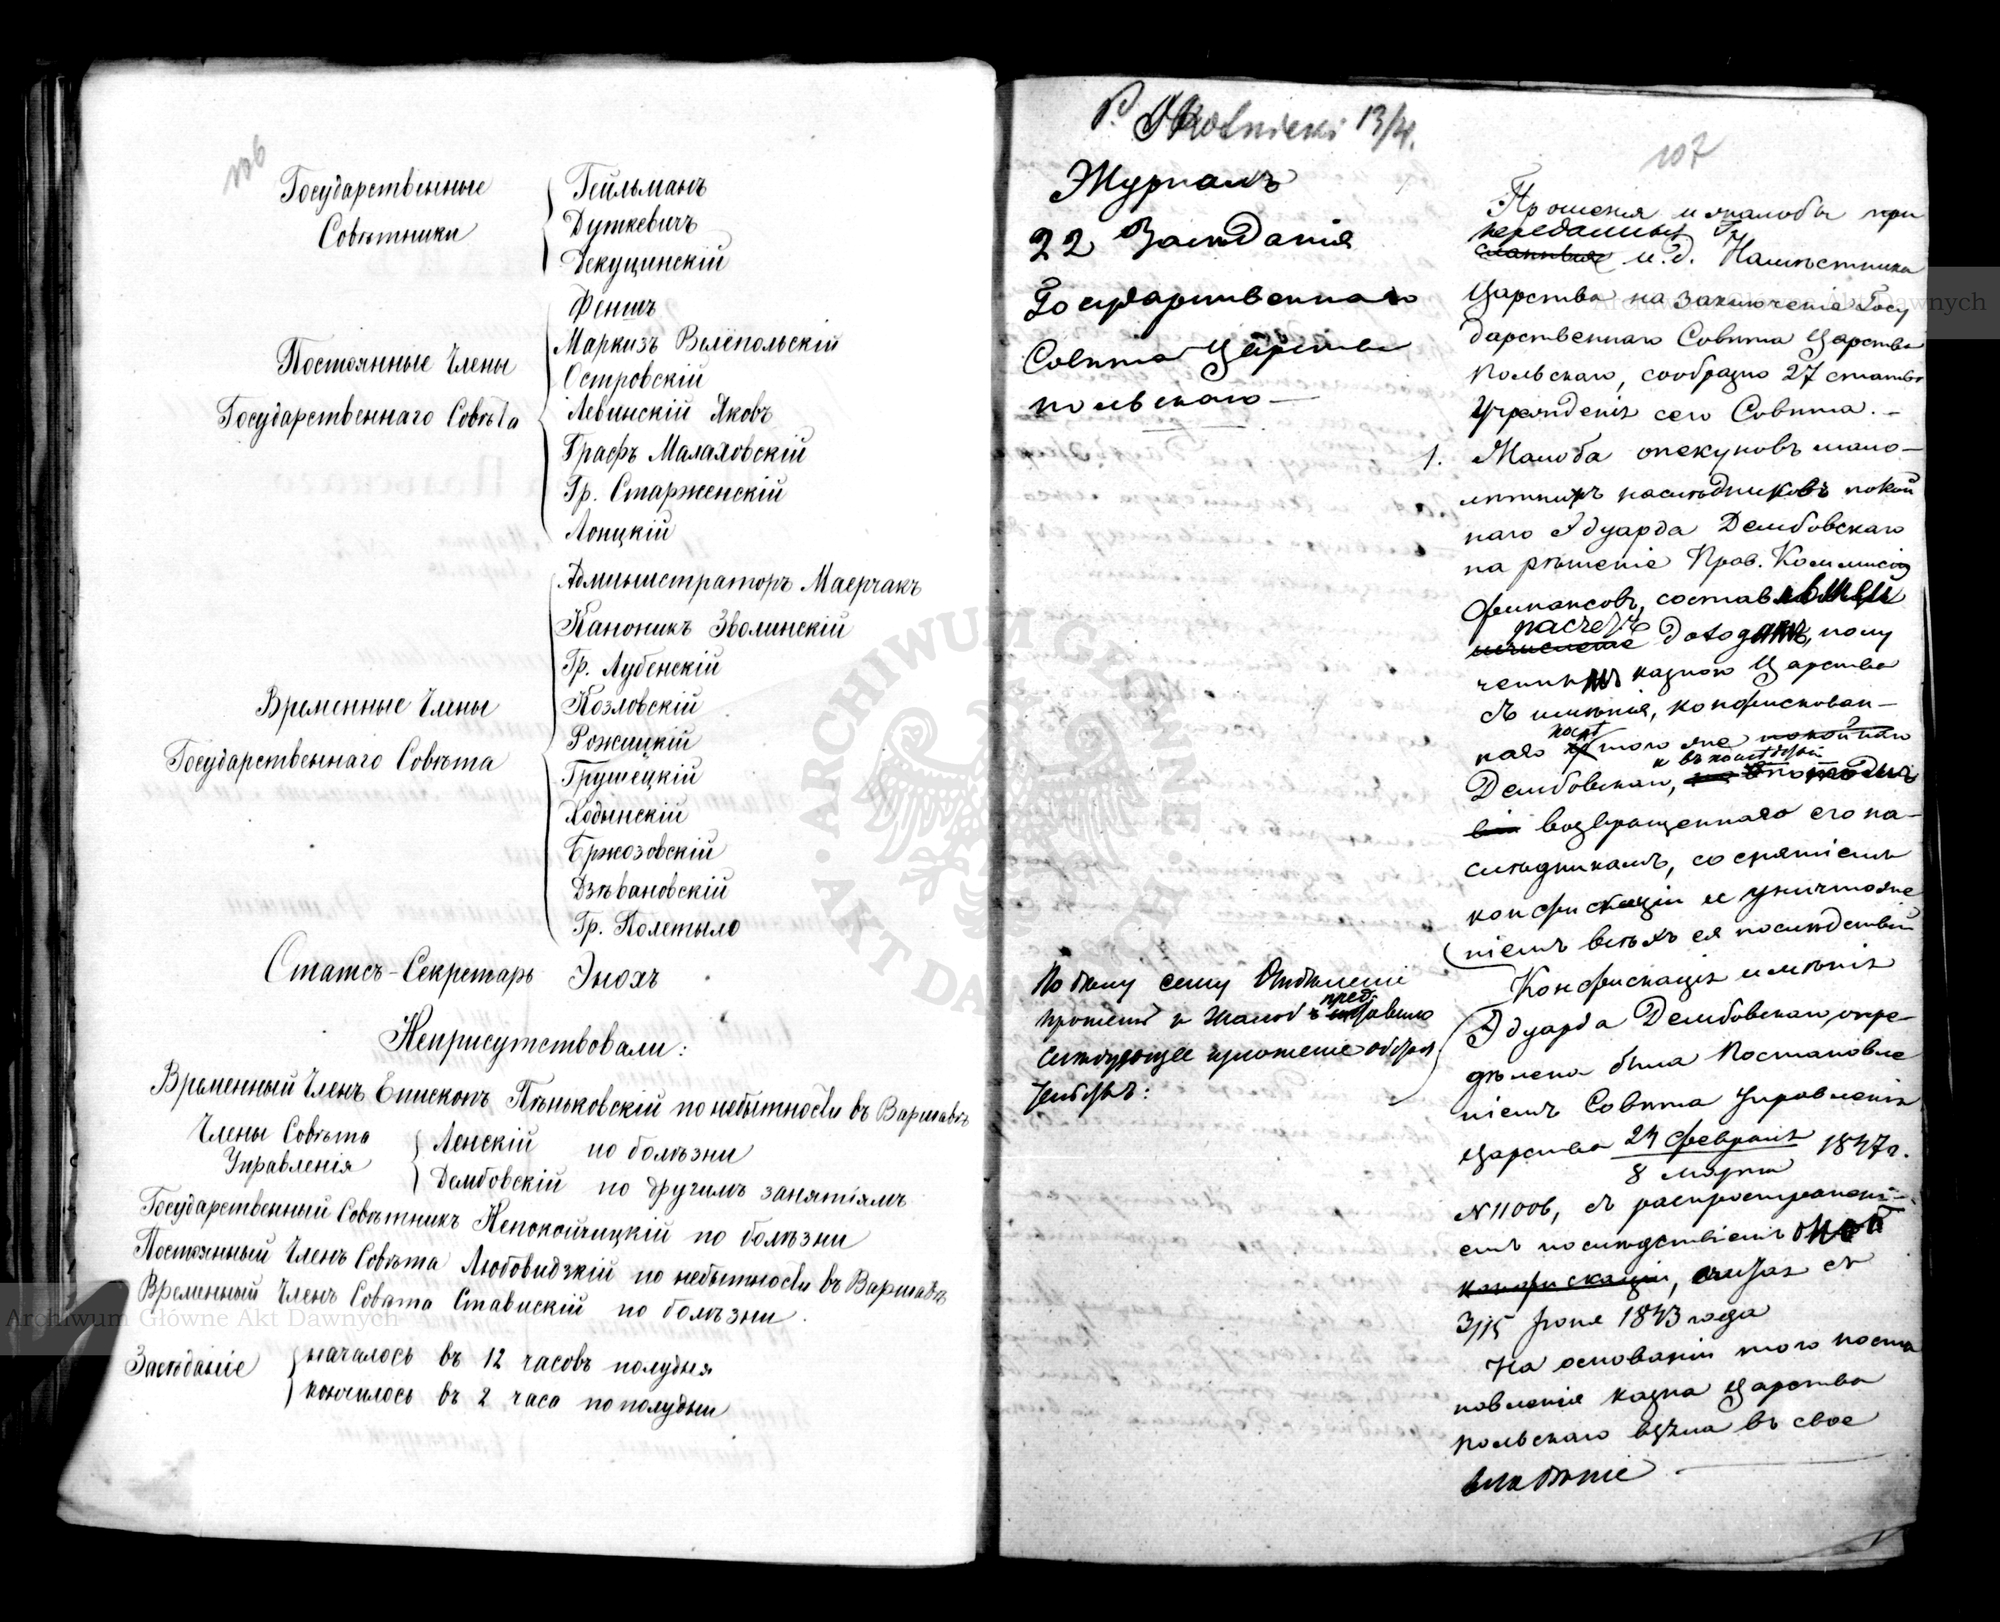 106
Государственные
Совѣтники
Гейльманъ
Дуткевичъ
Декуцинскій
Постоянные Члены
Государственнаго Совѣта
Феншъ
Маркизъ Велёпольскій
Островскій
Левинскій Яковъ
Графъ Малаховскій
Гр. Старженскій
Лопцкій
Временные Члены
Государственнаго Совѣта
Администраторъ Маерчакъ
Каноникъ Зволинскій
Гр. Лубенскій
Козловскій
Рожицкій
Грушецкій
Ходынскій
Бржозовскій
Дзѣвановскій
Гр. Полетыло
Статсъ-Секретарь Энохъ
Неприсутствовали:
Временный Членъ Епископъ Пѣньковскій по небытности въ Варшавѣ
Члены Совѣта
Управленія
Ленскій по болѣзни
Дембовскій по другимъ занятіямъ
Государственный Совѣтникъ Непокойчицкій по болѣзни
Постоянный Членъ Совѣта Любовидзкій по небытности въ Варшавѣ
Временный Членъ Совѣта Стависскій по болѣзни.
Засѣданіе
началось въ 12 часовъ полудня
кончилось въ 2 часа по полудни
P. Okolnicki 13/4.
107
Журналъ
22 Засѣданія
Государственнаго
Совѣта Царства
польскаго—
По дѣлу сему Отдѣленіе
прошеній и жалобъ пред-
ставило
слѣдующее изложеніе обстоя-
тельствъ:
Прошенія и жалобы при
переданныя
сланныя и.д. Намѣстника
Царства на заключеніе Госу
дарственнаго Совѣта Царства
Польскаго, сообразно 27 статьи
Учрежденія сего Совѣта.—
1. Жалоба опекуновъ мало—
лѣтнихъ наслѣдниковъ покой
наго Эдуарда Дембовскаго
на рѣшеніе Прав. Коммисіи
финансовъ, составлявшей
расчетъ
исчисленіе доходамъ, полу
ченнымъ казною Царства
съ имѣнія, конфискован—
наго у того же покойнаго
Дембовскаго, и въ последствіи
возвращеннаго его на—
слѣдникамъ, со снятіемъ
конфискаціи и уничтоже
ніемъ всѣхъ ея послѣдствій
Конфискація имѣнія
Эдуарда Дембовскаго, опре—
дѣлена была Постановле
ніемъ Совѣта Управленія
Царства 24 февраля / 8 марта 1847 г.
№ 11006, съ распространені—
емъ послѣдствіемъ оной
конфискаціи, считая съ
3/15 Іюня 1843 года
На основаніи того поста
новленія казна Царства
Польскаго взяла въ свое
владѣніе —
Archiwum Główne Akt Dawnych
Archiwum Główne Akt Dawnych
ARCHIWUM GŁÓWNE AKT DAWNYCH